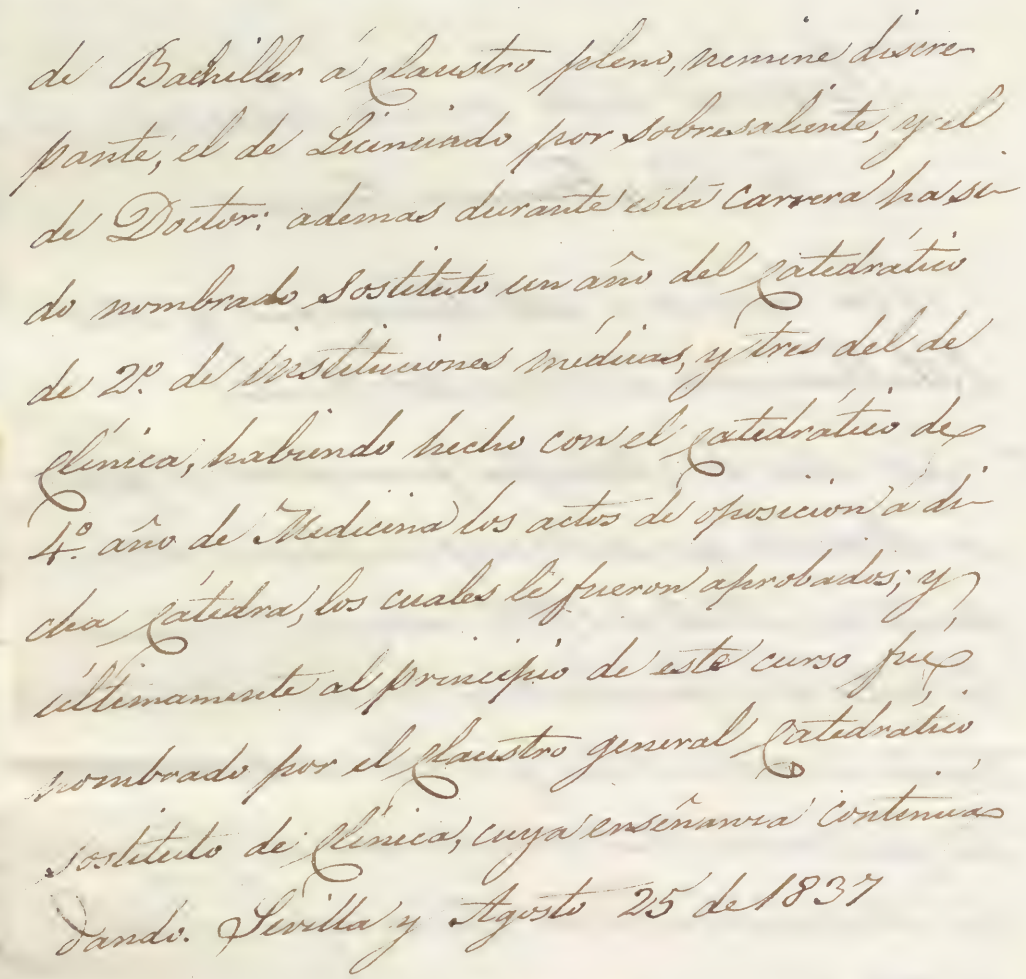 de Bachiller á claustro pleno, nemine discre-
pante, el de Licenciado por sobresaliente, y el
de Doctor: ademas durante esta carrera ha si-
do nombrado sostituto un año del catedrático
de 2º. de instituciones médicas, y tres del de
clínica, habiendo hecho con el catedrático de
4º. año de Medicina los actos de oposicion a di-
cha cátedra, los cuales le fueron aprobados; y
últimamente al principio de este curso fué
nombrado por el claustro general catedrático
sostituto de clínica, cuya enseñanza continúa
dando. Sevilla y Agosto 25 de 1837